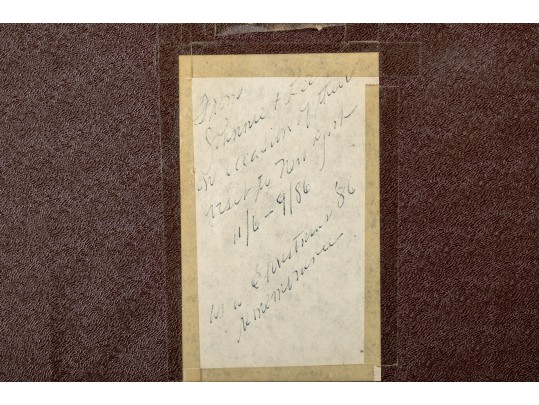 From
Johnnie +
on occasion of their
visit to New York
11/6 - 9/86
as a Christmas '86
remembrance